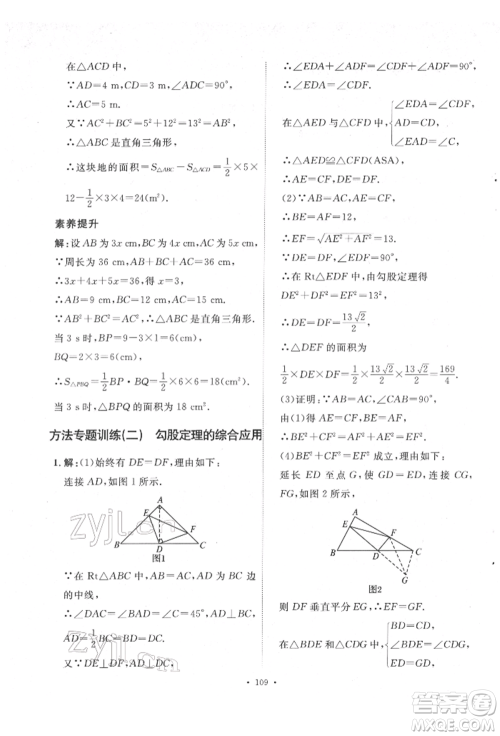 在△ACD中，
∵AD=4 m，CD=3 m，∠ADC=90°，
∴AC=5 m.
又∵AC²+BC²=5²+12²=13²=AB²，
∴△ABC是直角三角形，
∴这块地的面积=S△ABC-S△ACD=1/2×5×
12-1/2×3×4=24(m²).
素养提升
解：设AB为3x cm，BC为4x cm，AC为5x cm.
∵周长为36 cm，AB+BC+AC=36 cm，
∴3x+4x+5x=36，解得x=3.
∴AB=9 cm，BC=12 cm，AC=15 cm.
∵AB²+BC²=AC²，
∴△ABC是直角三角形.
当3 s时，BP=9-3×1=6(cm)，
BQ=2×3=6(cm)，
∴S△PBQ=1/2BP·BQ=1/2×6×6=18(cm²).
当3 s时，△BPQ的面积为18 cm².
方法专题训练(二) 勾股定理的综合应用
1.解：(1)始终有DE=DF，理由如下：
连接AD，如图1所示.
A
E
F
B
D
C
图1
∵在Rt△ABC中，AB=AC，AD为BC边
的中线，
∴∠DAC=∠BAD=∠C=45°，AD⊥BC，
AD=1/2BC=BD=DC.
又∵DE⊥DF，AD⊥DC，
∴∠EDA+∠ADF=∠CDF+∠ADF=90°，
∴∠EDA=∠CDF.
在△AED与△CFD中，{∠EDA=∠CDF，
AD=CD，
∠EAD=∠C，
∴△AED≌△CFD(ASA).
∴AE=CF，DE=DF.
(2)∵AE=CF=5，AB=AC=17，
∴BE=AF=12，
∴EF=√(AE²+AF²)=13.
∵DE=DF，∠EDF=90°，
∴在Rt△EDF中，由勾股定理得
DE²+DF²=EF²=13²，
∴DE=DF=13√2/2，
∴△DEF的面积为
1/2×DE×DF=1/2×13√2/2×13√2/2=169/4.
(3)BE+CF>EF，理由如下：
延长ED至点G，使DG=DE，连接CG，
FG，如图2所示.
A
E
F
B
D
C
G
图2
则DF垂直平分EG，∴EF=GF.
在△BDE和△CDG中，{BD=CD，
∠BDE=∠CDG，
ED=GD，
· 109 ·
zyjl.cn